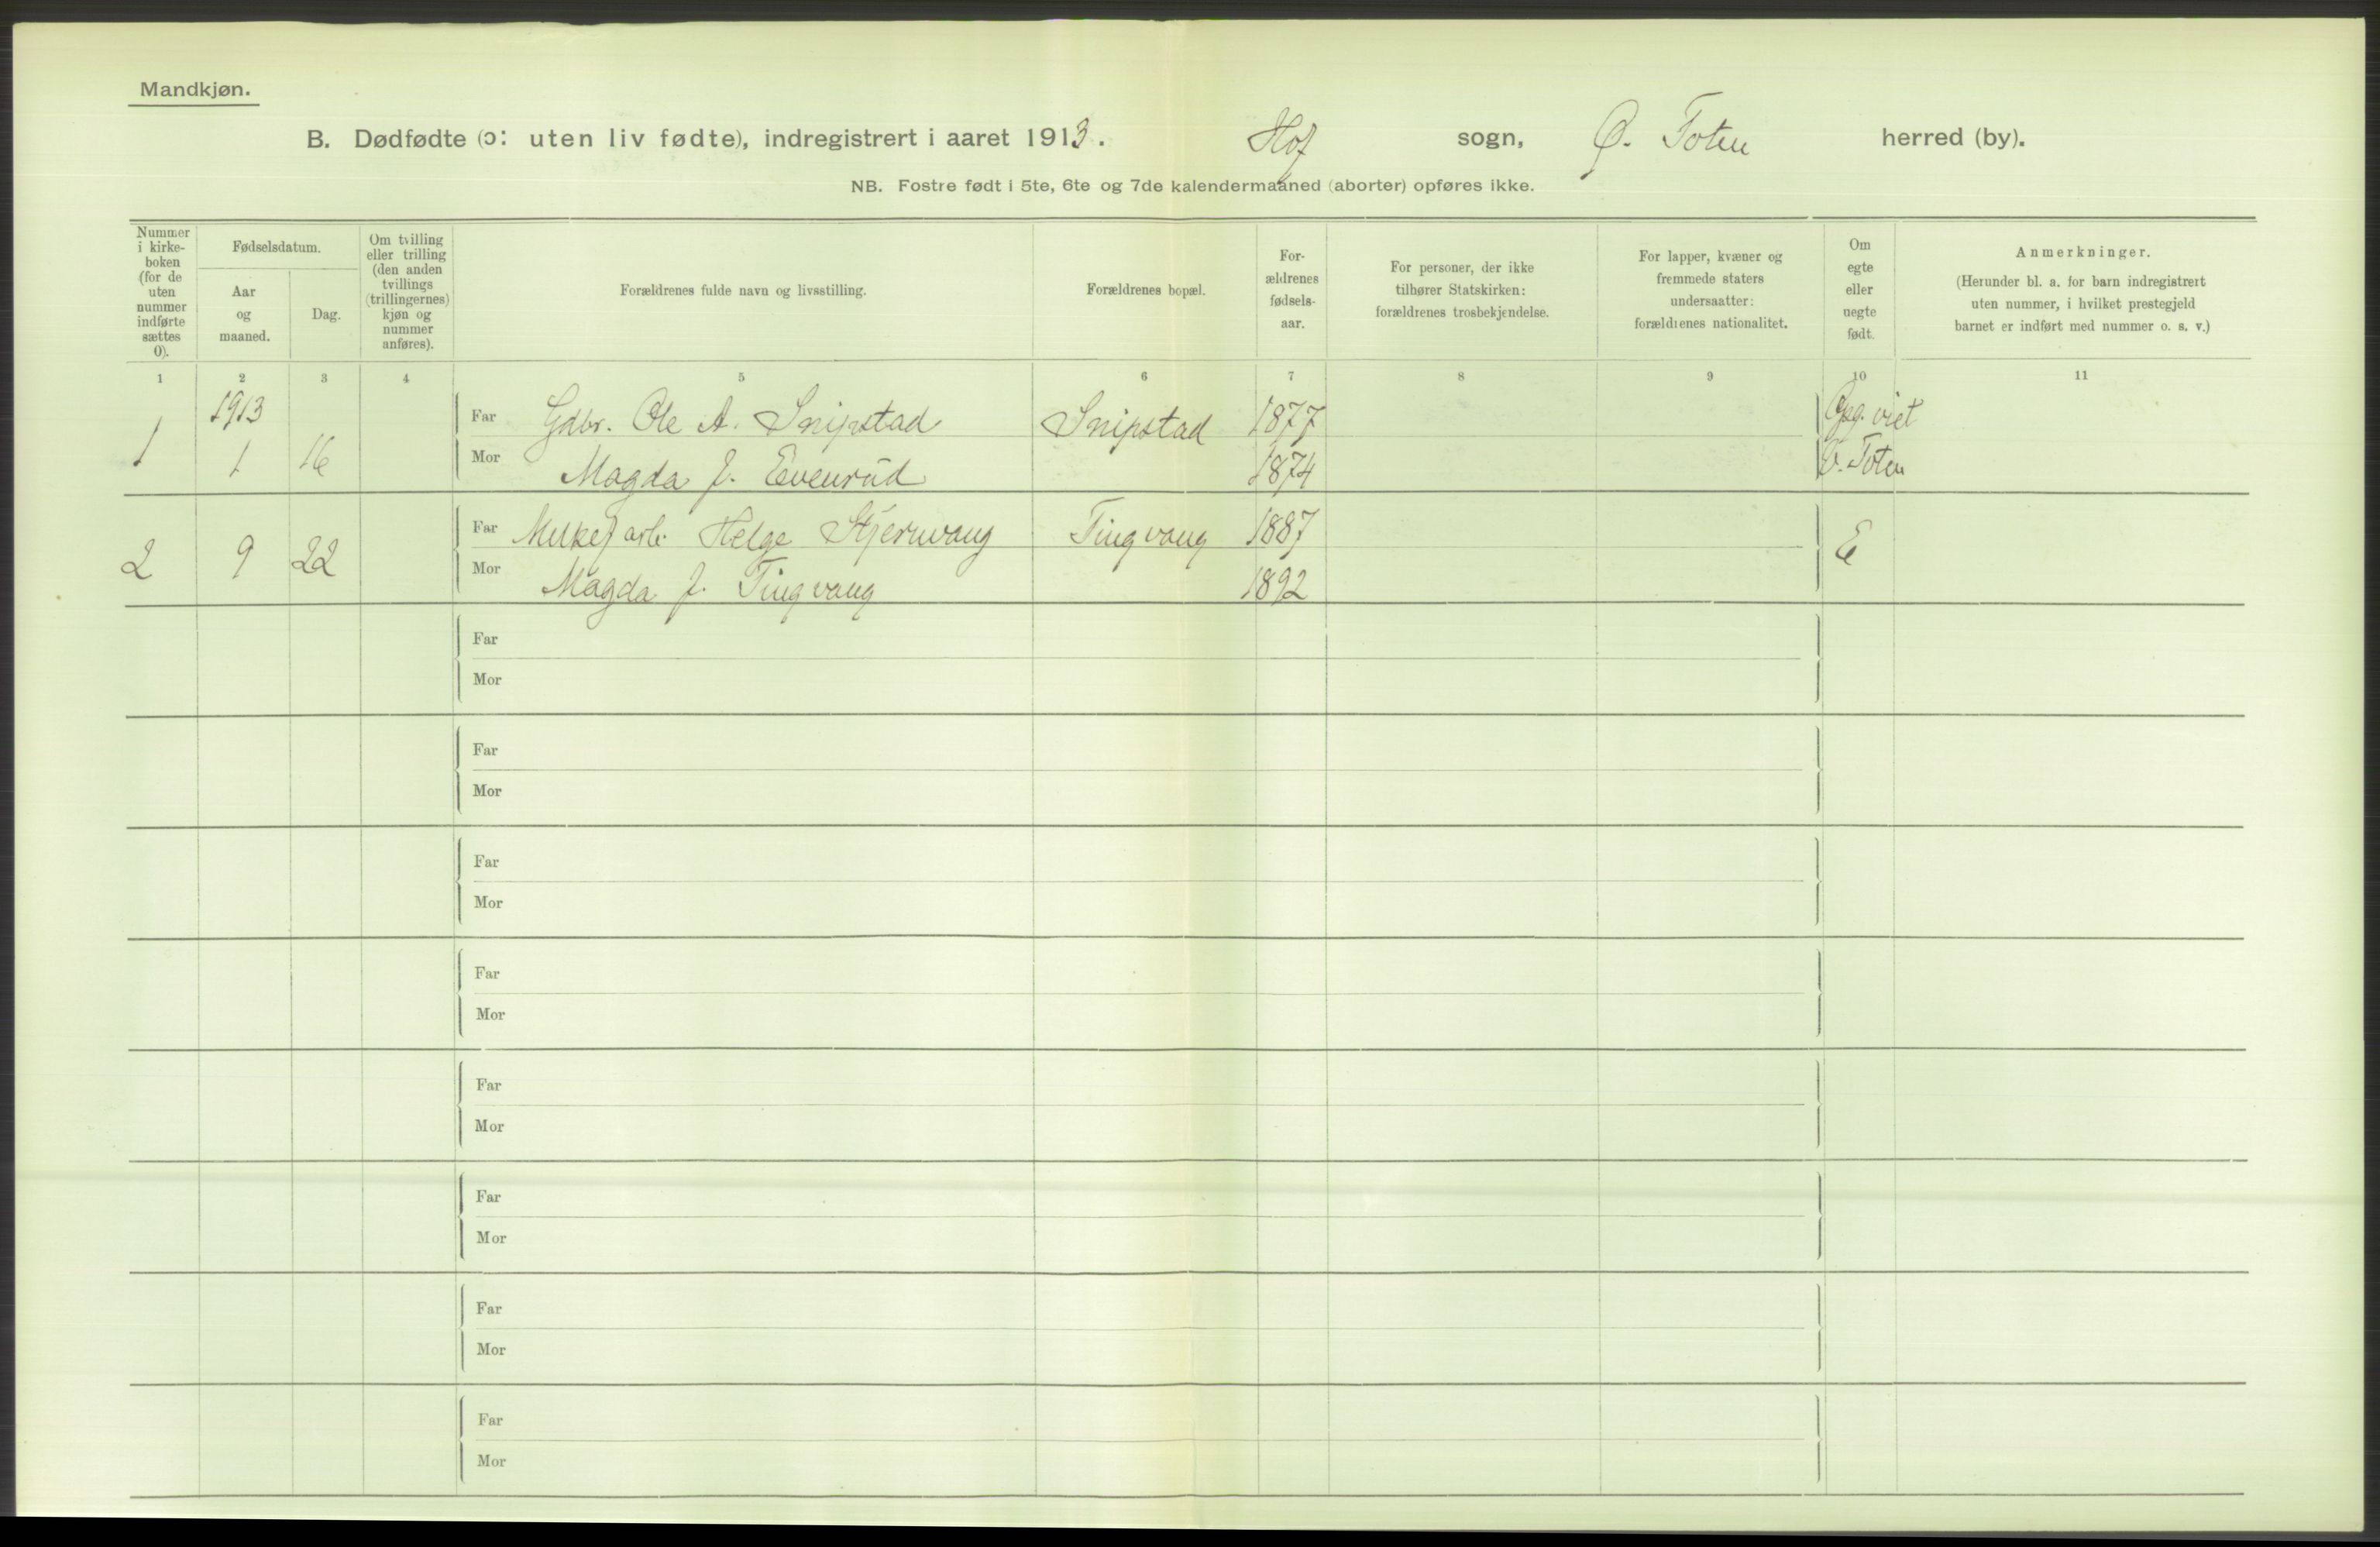 Mandkjøn.
B. Dødfødte (ɔ: uten liv fødte), indregistrert i aaret 1913. Hof sogn, Ø. Toten herred (by).
NB. Fostre født i 5te, 6te og 7de kalendermaaned (aborter) opføres ikke.
Nummer
i kirke-
boken
(for de
uten
nummer
indførte
sættes
0).
Fødselsdatum.
Aar
og
maaned.
Dag.
Om tvilling
eller trilling
(den anden
tvillings
(trillingernes)
kjøn og
nummer
anføres).
Forældrenes fulde navn og livsstilling.
Forældrenes bopæl.
For-
ældrenes
fødsels-
aar.
For personer, der ikke
tilhører Statskirken:
forældrenes trosbekjendelse.
For lapper, kvæner og
fremmede staters
undersaatter:
forældrenes nationalitet.
Om
egte
eller
uegte
født.
Anmerkninger.
(Herunder bl. a. for barn indregistrert
uten nummer, i hvilket prestegjeld
barnet er indført med nummer o. s. v.)
1 2 3 4 5 6 7 8 9 10 11
1913
Far Gdbr. Ole A. Snipstad Snipstad 1877 viet
1 1 16
Mor Magda J. Evenrud 1874 Toten
Far arb. Helge Stjernvang Tingvang 1887
2 9 22 E
Mor Magda J. Tingvang 1892
Far
Mor
Far
Mor
Far
Mor
Far
Mor
Far
Mor
Far
Mor
Far
Mor
Far
Mor